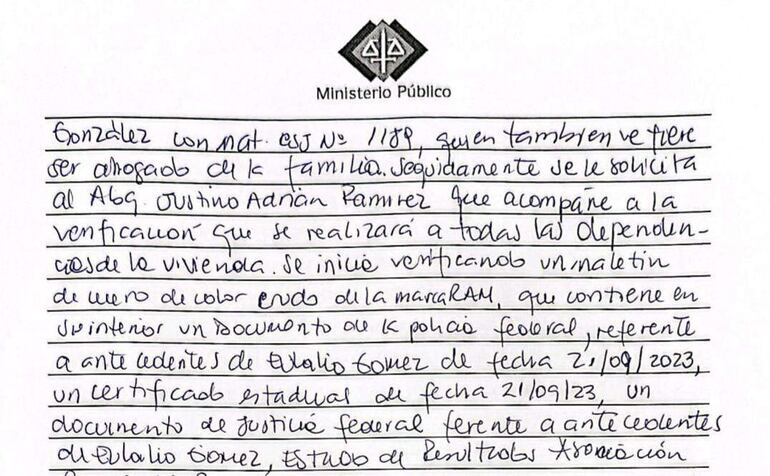 Ministerio Público
González con mat. CSJ Nº 1189, quien tambien refiere
ser abogado de la familia. Seguidamente se le solicita
al Abg. Justino Adrián Ramirez que acompañe a la
verificación que se realizará a todas las dependen-
cias de la vivienda. Se inicia verificando un maletin
de cuero de color crudo de la marca RAM, que contiene en
su interior un documento de la policia federal, referente
a antecedentes de Eulalio Gomez de fecha 21/09/2023,
un certificado estadual de fecha 21/09/23, un
documento de justicia federal ferente a antecedentes
de Eulalio Gomez, Estado de Resultados Asociación